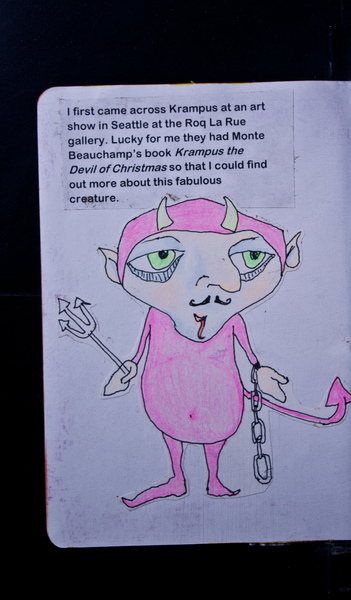 I first came across Krampus at an art
show in Seattle at the Roq La Rue
gallery. Lucky for me they had Monte
Beauchamp's book Krampus the
Devil of Christmas so that I could find
out more about this fabulous
creature.